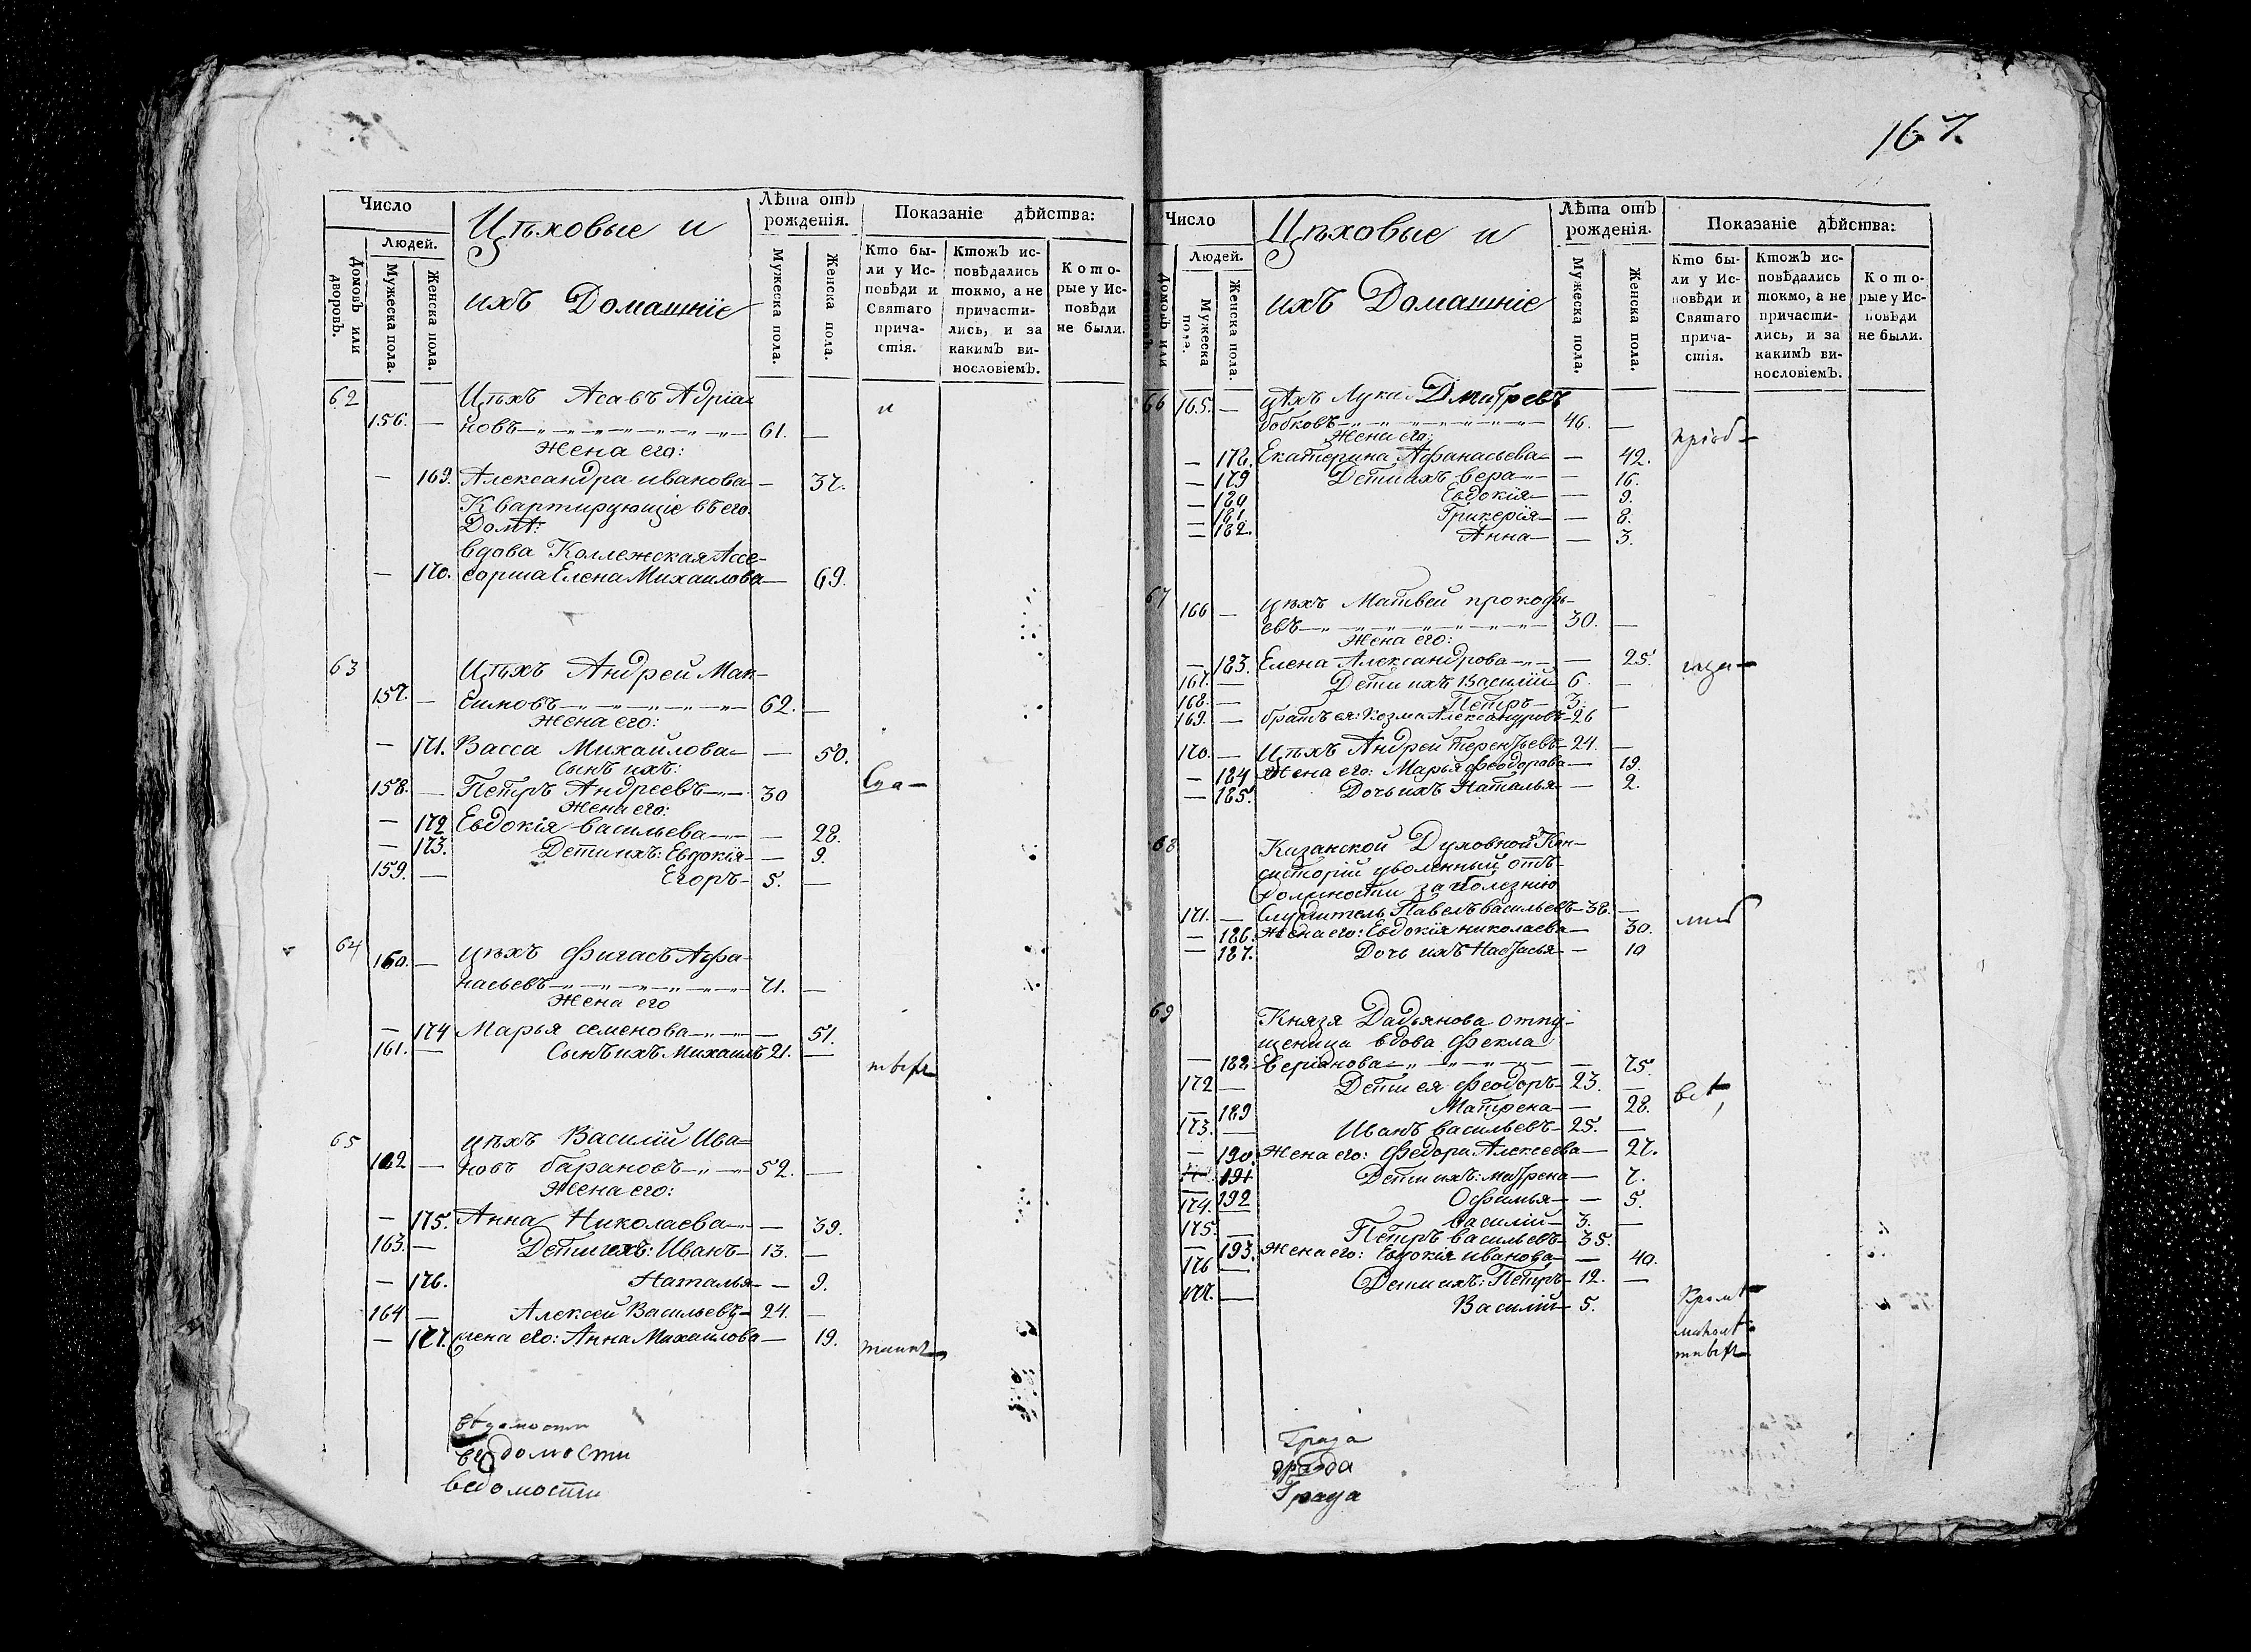 167.
Число
Людей.
Домовъ или дворовъ.
Мужеска пола.
Женска пола.
Цѣховые и
ихъ Домашніе
Лѣта отъ рожденія.
Мужеска пола.
Женска пола.
Показаніе дѣйства:
Кто были у Исповѣди и Святаго причастія.
Ктожъ исповѣдались токмо, а не причастились, и за какимъ винословіемъ.
Которые у Исповѣди не были.
62 Цѣхъ Асавъ Адріа=
156. — новъ 61. —
Жена его:
— 169. Александра иванова — 37.
Квартирующіе въ его
Домѣ:
вдова Коллежская Ассе-
— 170. сорша Елена Михаилова — 69.
и
63 Цѣхъ Андрей Мак-
157. — симовъ 62. —
Жена его:
— 171. Васса Михайлова — 50.
Сынъ ихъ:
158. — Петръ Андреевъ 30
Жена его:
— 172 Евдокія васильева — 28.
— 173. Дети ихъ: Евдокія — 9.
159. — Егоръ 5. —
64
160. — цѣхъ Афа-
насьевъ 71. —
Жена его
— 174 Марья семенова — 51.
161. — Сынъ ихъ Михаилъ 21. —
65 цѣхъ Василій Ива=
162 — новъ барановъ 52. —
Жена его:
— 175. Анна Николаева — 39.
163. — Дети ихъ: Иванъ 13. —
— 176. Наталья — 9.
164 — Алексей Васильевъ 24. —
— 177. жена его: Анна Михаилова — 19.
ведомости
ведомости
ведомости
Число
Людей.
Домовъ или дворовъ.
Мужеска пола.
Женска пола.
Цѣховые и
ихъ Домашніе
Лѣта отъ рожденія.
Мужеска пола.
Женска пола.
Показаніе дѣйства:
Кто были у Исповѣди и Святаго причастія.
Ктожъ исповѣдались токмо, а не причастились, и за какимъ винословіемъ.
Которые у Исповѣди не были.
66 165. — цѣхъ Лука Дмитревъ
бобковъ 46. —
Жена его:
— 178. Екатерина Афанасьева — 42.
— 179 Дети ихъ вера — 16.
— 180 Евдокія — 9.
— 181. Гликерія — 8.
— 182. Анна — 3.
67
166 — цѣхъ Матвей прокофь-
евъ 30. —
Жена его:
— 183. Елена Александрова — 25.
167. — Дети ихъ Василій 6 —
168. — Петръ 3. —
169. — братъ ея: Козма Александровъ 26
170. — Цѣхъ Андрей терентьевъ 24. —
— 184 Жена его: Марья феодорова — 19.
— 185. Дочь ихъ Наталья — 2.
68 Казанской Духовной Кон-
систоріи уволенный отъ
Должности за болезнію
171. — Служитель Павелъ васильевъ 38. —
— 186. Жена его: Евдокія николаева — 30.
— 187. Дочь ихъ Настасья — 10
69 Князя Дадьянова отпу-
щеница вдова Фекла
— 188 75.
172 — Дети ея Феодоръ 23. —
— 189 Матрена — 28.
173. — Иванъ васильевъ 25. —
— 190. Жена его: Федора Алексеева — 27.
191 Дети ихъ: Матрена — 7.
192 Офимья — 5.
174. — василій 3. —
175. — Петръ васильевъ 35.
— 193. Жена его: Евдокія иванова — 40.
176 — Дети ихъ: Петръ 12. —
177. — Василій 5.
Града
града
Града